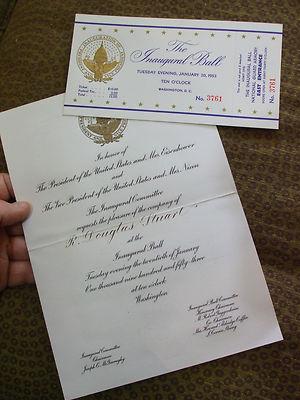 The
Inaugural Ball
TUESDAY EVENING, JANUARY 20, 1953
TEN O'CLOCK
WASHINGTON, D. C.
No. 3761
THE INAUGURAL BALL
NATIONAL GUARD ARMORY
EAST ENTRANCE
No. 3761
In honor of
The President of the United States and Mrs. Eisenhower
and
The Vice President of the United States and Mrs. Nixon
The Inaugural Committee
requests the pleasure of the company of
R. Douglas Stuart
at the
Inaugural Ball
Tuesday evening the twentieth of January
One thousand nine hundred and fifty three
at ten o'clock
Washington
Inaugural Committee
Chairman
Joseph C. McGarraghy
Inaugural Ball Committee
Honorary Chairman
M. Robert Guggenheim
Co-Chairmen
Mrs. Howard Aldridge Coffin
J. Corrin Strong